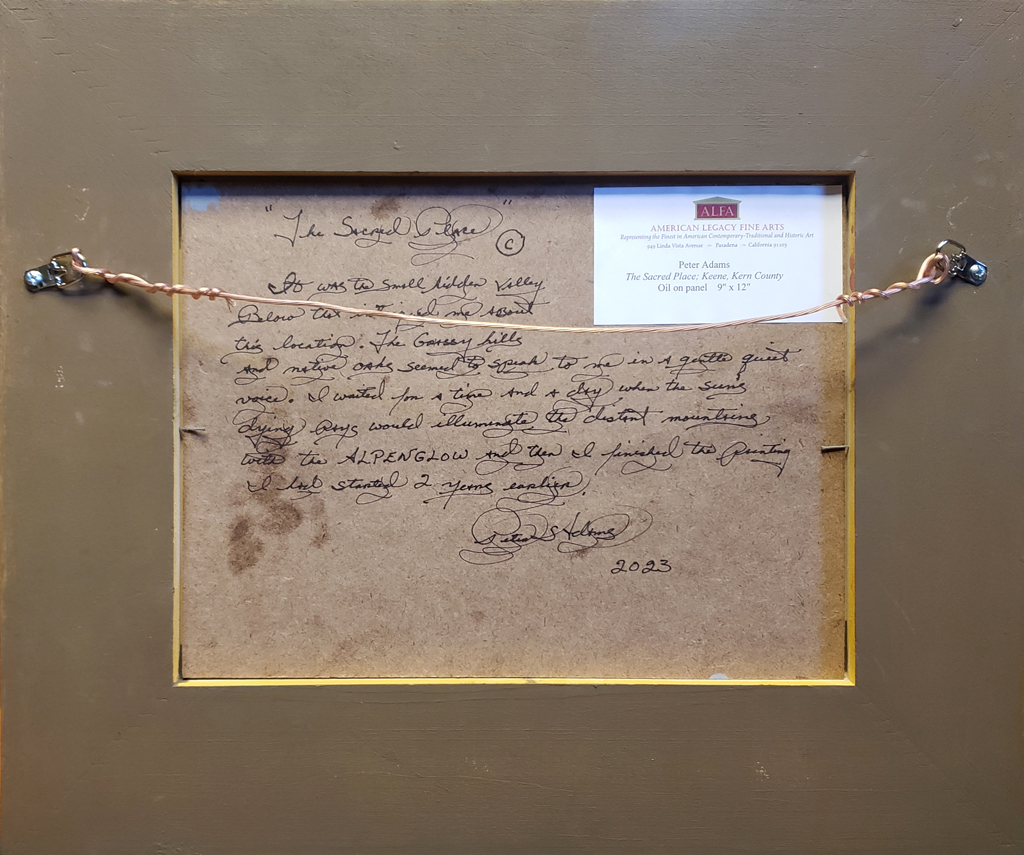 "The Sacred Place" ©
ALFA
AMERICAN LEGACY FINE ARTS
Representing the Finest in American Contemporary-Traditional and Historic Art
949 Linda Vista Avenue ~ Pasadena ~ California 91103
Peter Adams
The Sacred Place; Keene, Kern County
Oil on panel 9" x 12"
It was the small hidden valley
Below that me about
this location. The Grassy hills
and native oaks seemed to speak to me in a gentle quiet
voice. I waited for a time and a day when the sun's
dying rays would illuminate the distant mountains
with the ALPENGLOW and then I finished the painting
I had started 2 years earlier.
Peter S Adams
2023